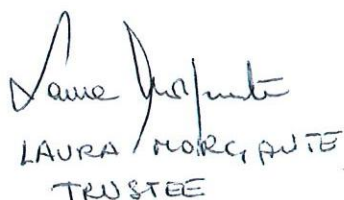 Laura Morgante
LAURA MORGANTE
TRUSTEE